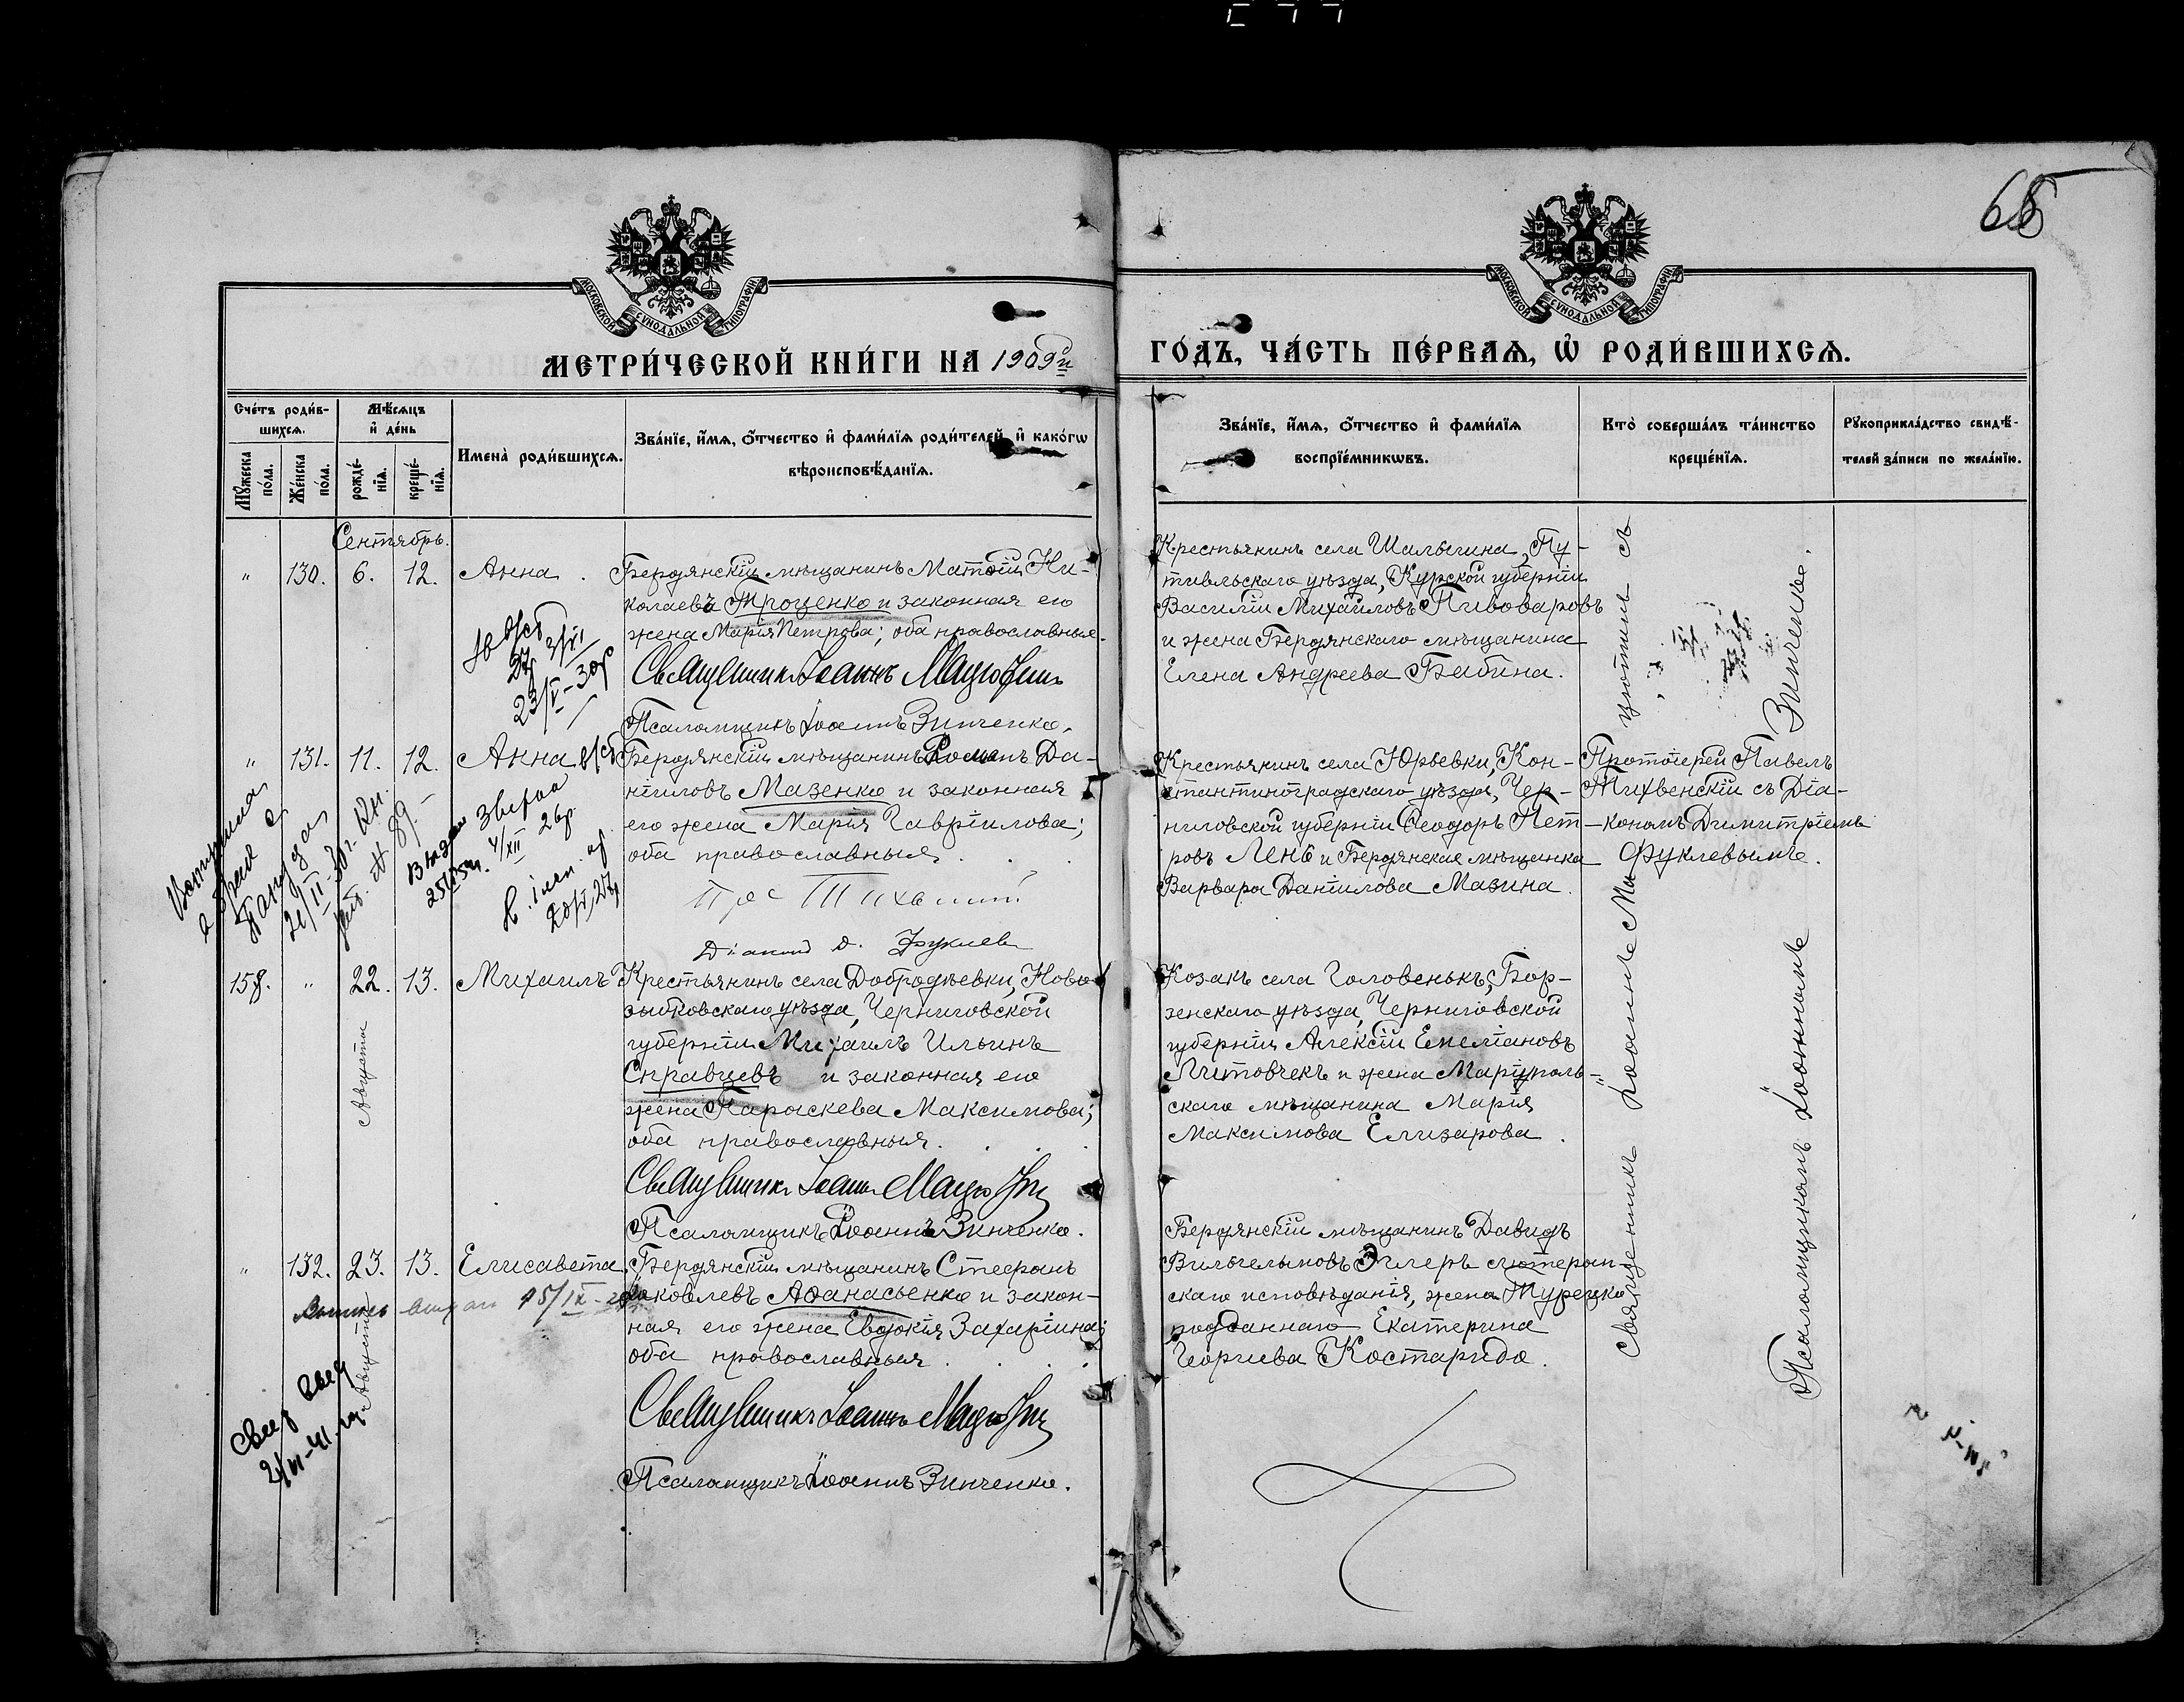 65
МОСКОВСКОЙ СУНОДАЛЬНОЙ ТИПОГРАФІИ
МОСКОВСКОЙ СУНОДАЛЬНОЙ ТИПОГРАФІИ
МЕТРИ́ЧЕСКОЙ КНИ́ГИ НА 1909й
ГО́ДЪ, ЧА́СТЬ ПЕ́РВАѦ, Ѡ҆ РОДИ́ВШИХСѦ.
Сче́тъ роди́в-
шихсѧ.
Мꙋ́жеска по́ла.
Же́нска по́ла.
Мѣ́сѧцъ
и҆ де́нь
рожде́-
нїѧ.
креще́-
нїѧ.
Имена̀ роди́вшихсѧ.
Зва́нїе, и҆́мѧ, о҆́тчество и҆ фами́лїѧ роди́телей и҆ како́гѡ
вѣроисповѣ́данїѧ.
Зва́нїе, и҆́мѧ, о҆́тчество и҆ фами́лїѧ
воспрїе́мникѡвъ.
Кто̀ соверша́лъ та́инство
креще́нїѧ.
Рꙋкоприкла́дство свидѣ́-
телей за́писи по жела́нїю.
Сентябрь.
" 130. 6. 12. Анна.
Бердянскій мѣщанинъ Матѳій Ни-
колаевъ Троценко и законная его
жена Марія Петрова; оба православные.
Священникъ Іоаннъ
Псаломщикъ Іоаннъ Зинченко.
Крестьянинъ села Шалыгина, Пу-
тивльскаго уѣзда, Курской губерніи
Василій Михайловъ Пивоваровъ
и жена Бердянскаго мѣщанина
Елена Андреева Бабина.
23/V-30г
" 131. 11. 12. Анна
Бердянскій мѣщанинъ Романъ Да-
ніиловъ Мазенко и законная
его жена Марія Гавріилова;
оба православныя.
Діаконъ Д. Фуклев
Крестьянинъ села Юрьевки, Кон-
стантиноградскаго уѣзда, Чер-
ниговской губерніи Ѳеодоръ Пет-
ровъ Лень и Бердянская мѣщанка
Варвара Даніилова Мазина.
Протоіерей Павелъ
Тихвенскій съ Діа-
кономъ Димитріемъ
Фуклевымъ.
158. " 22. 13. Михаилъ
Августа
Крестьянинъ села Добродѣевки, Ново-
зыбковскаго уѣзда, Черниговской
губерніи Михаилъ Ильинъ
Справцевъ и законная его
жена Параскева Максимова;
оба православныя.
Священникъ Іоаннъ
Псаломщикъ Іоаннъ Зинченко.
Козакъ села Головенькъ, Бор-
зенскаго уѣзда, Черниговской
губерніи Алексій Емеліановъ
Литовчекъ и жена Маріуполь-
скаго мѣщанина Марія
Максимова Елизарова.
" 132. 23. 13. Елисавета.
Августа
Бердянскій мѣщанинъ Стефанъ
Іаковлевъ Аѳанасьенко и закон-
ная его жена Евдокія Захаріина;
оба православныя.
Священникъ Іоаннъ
Псаломщикъ Іоаннъ Зинченко.
Бердянскій мѣщанинъ Давидъ
Вильгельмовъ Эглеръ лютеран-
скаго исповѣданія, жена Турецко
подданнаго Екатерина
Георгіева Костариди.
Священникъ Іоаннъ
Псаломщикомъ Іоанномъ Зинченко.